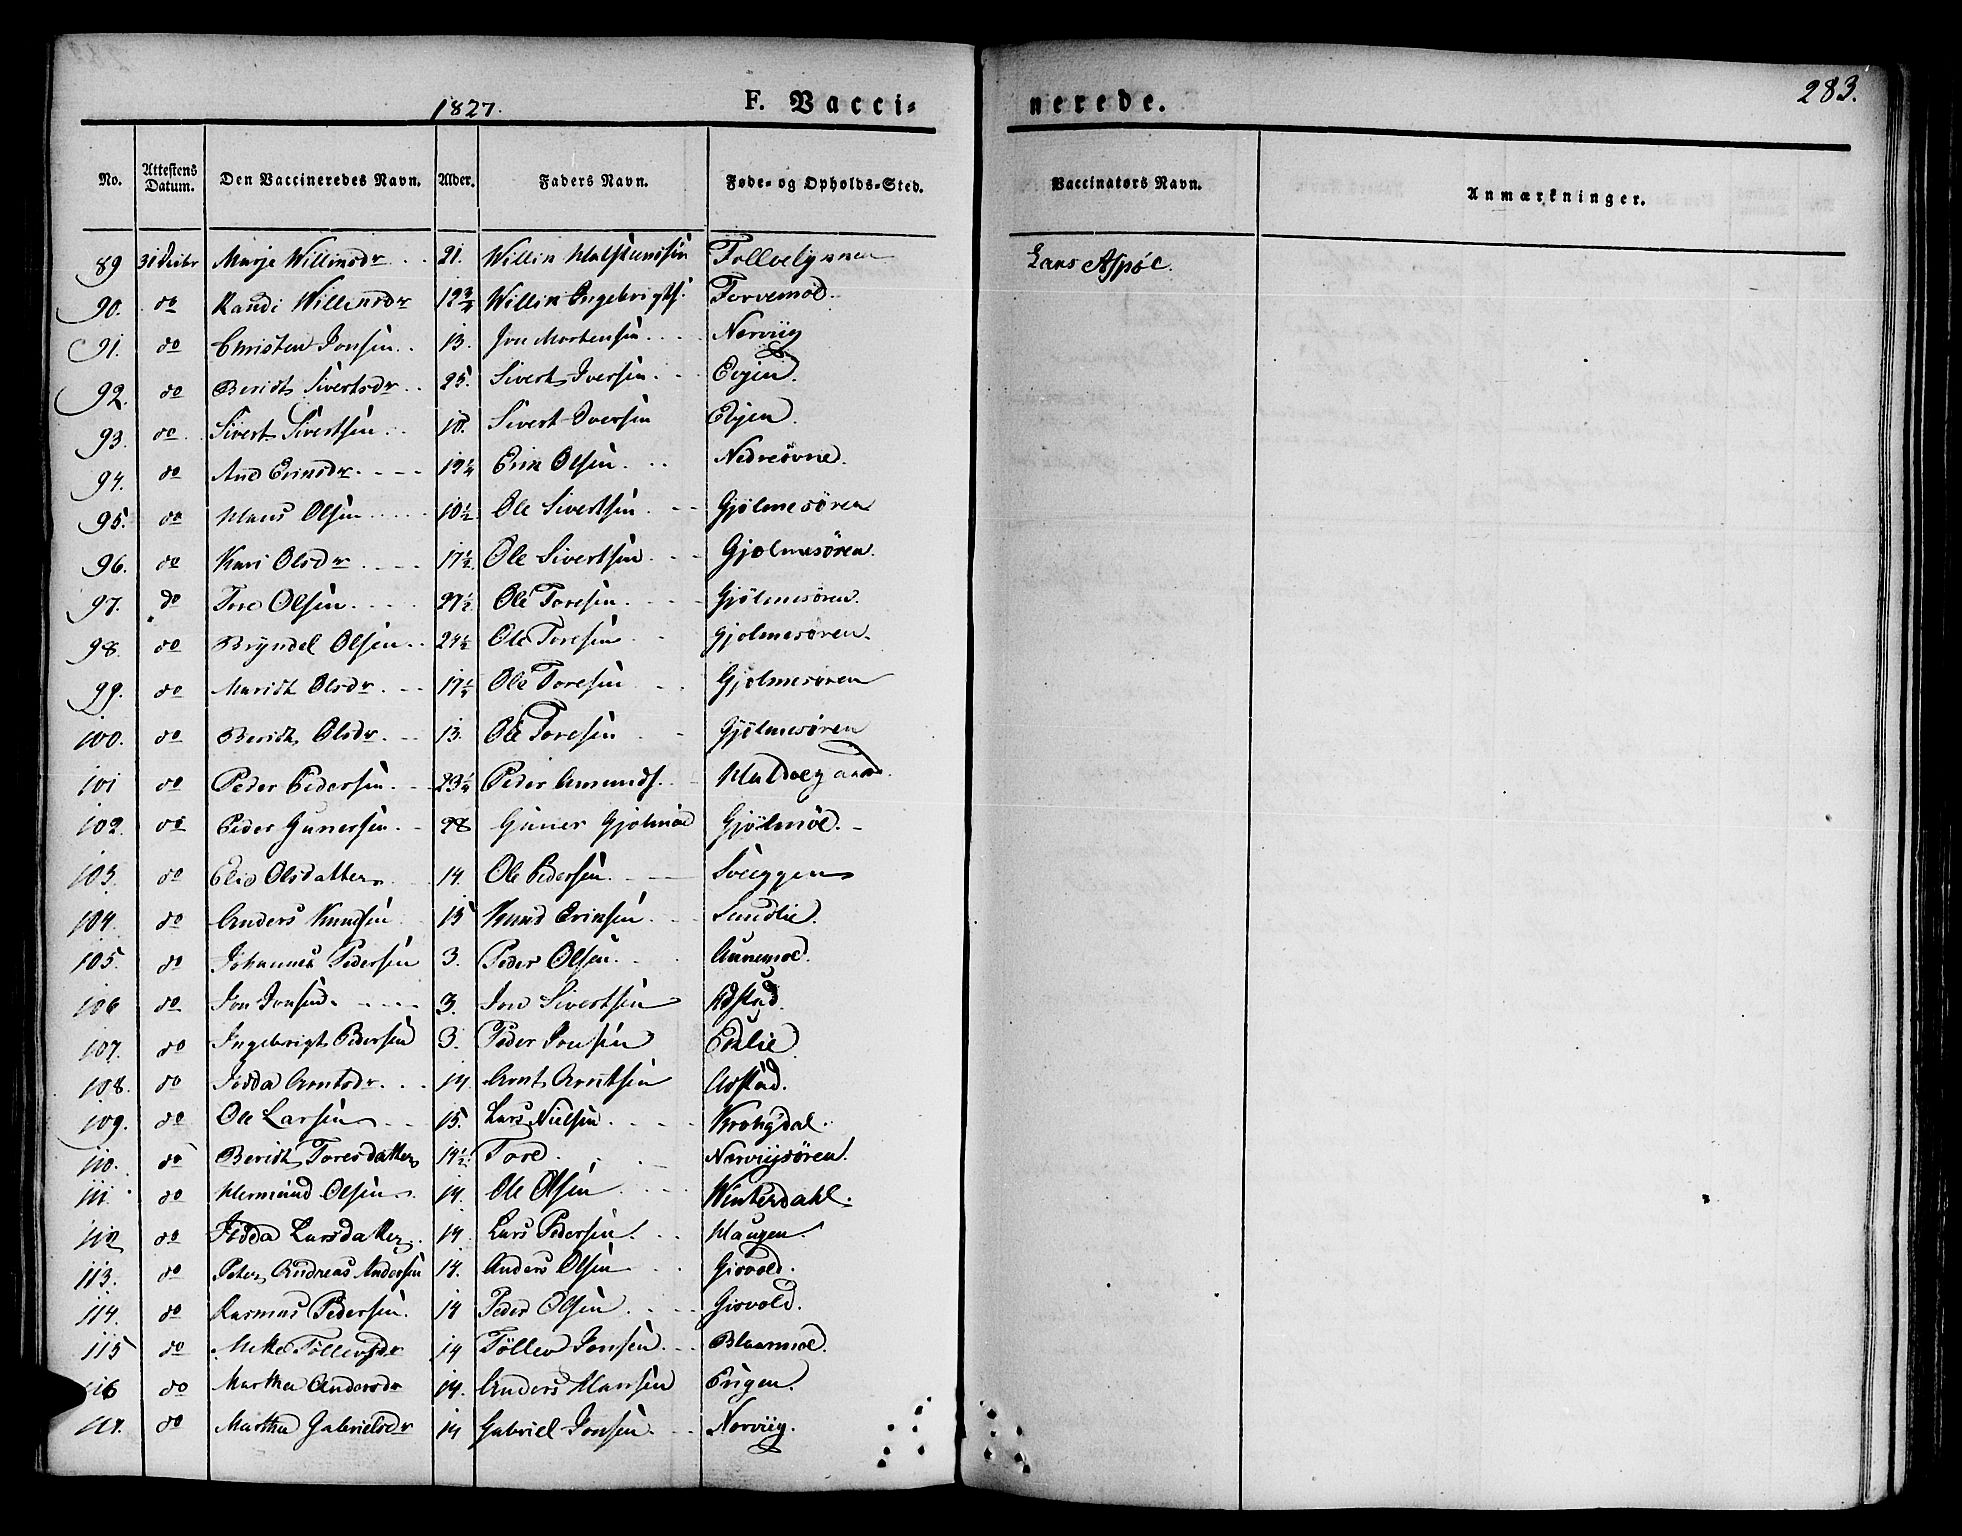 1827. F. Vacci= nerede. 283.
No. Attestens Datum. Den Vaccineredes Navn. Alder. Faders Navn. Føde= og Opholds=Sted. Vaccinators Navn. Anmærkninger.
89 31 Marje Willinsdr 21. Willin Follvelynnen Lars Aspøe.
90. do Randi Willinsdr 12¾ Willin Ingebrigts. Forvemoe.
91. do Christen Jonsen 13. Jon Mortensen Norviig
92. do Beridt Sivertsdr 25. Sivert Iversen Evjen.
93. do Sivert Sivertsen 18. Sivert Iversen Evjen.
94. do Ane Ericsdr 12¼ Eric Olsen Nedreøvne.
95. do Hans Olsen 10½ Ole Sivertsen Gjølmesøren
96. do Kari Olsdr 17½ Ole Sivertsen Gjølmesøren.
97. do Tore Olsen 27½ Ole Toresen Gjølmesøren.
98. do Bryndel Olsen 24½ Ole Toresen Gjolmesøren.
99. do Maridt Olsdr 17¼ Ole Toresen Gjolmesøren
100. do Beridt Olsdr 13. Ole Toresen Gjølmesøren
101 do Peder Pedersen 23¼ Peder Amunds.
102. do Peder Gunersen 28 Guner Gjolmoe Gjølmøe.
103. do Elie Olsdatter 14. Ole Pedersen Sveiggen
104. do Anders Knudsen 15 Knud Ericsen Sundlie.
105. do Johannes Pedersen 3. Peder Olsen Aunemoe.
106 do Jon Jonsen 3. Jon Sivertsen
107. do Ingebrigt Pedersen 3. Peder Jonsen Eidlie.
108. do Arntsdr 14. Arnt Arntsen Aostad.
109. do Ole Larsen 15. Lars Nielsen Krohgdal.
110. do Beridt Toresdatter 14½ Tore Norviigsøren.
111. do Hermund Olsen 14. Ole Olsen Winterdahl.
112 do Larsdatter 14. Lars Pedersen Haugen.
113. do Peter Andreas Andersen 14. Anders Olsen Gisvold.
114. do Rasmus Pedersen 14 Peder Olsen Gisvold.
115 do Tøllevsdr 14 Tøllev Jonsen Blaamoe.
116 do Martha Andersdr 14. Anders Hansen
117. do Martha Gabrielsdr 14 Gabriel Jonsen Norviig.